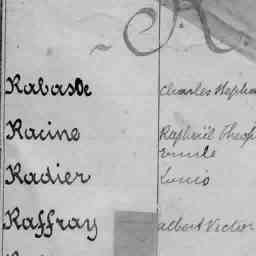 R
Rabasde Charles Stépha
Racine Raphaël Théop
Emile
Radier Louis
Raffray Albert Victor